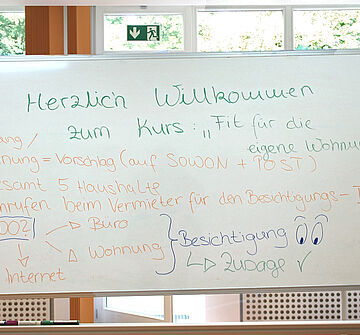 Herzlich Willkommen
zum Kurs: „Fit für die
eigene Wohnun
ang/
nung = Vorschlag (auf SOWON + POST)
esamt 5 Haushalte
nrufen beim Vermieter für den Besichtigungs-
WOO? → Büro
→ Wohnung
Besichtigung
→ Zusage ✓
Internet